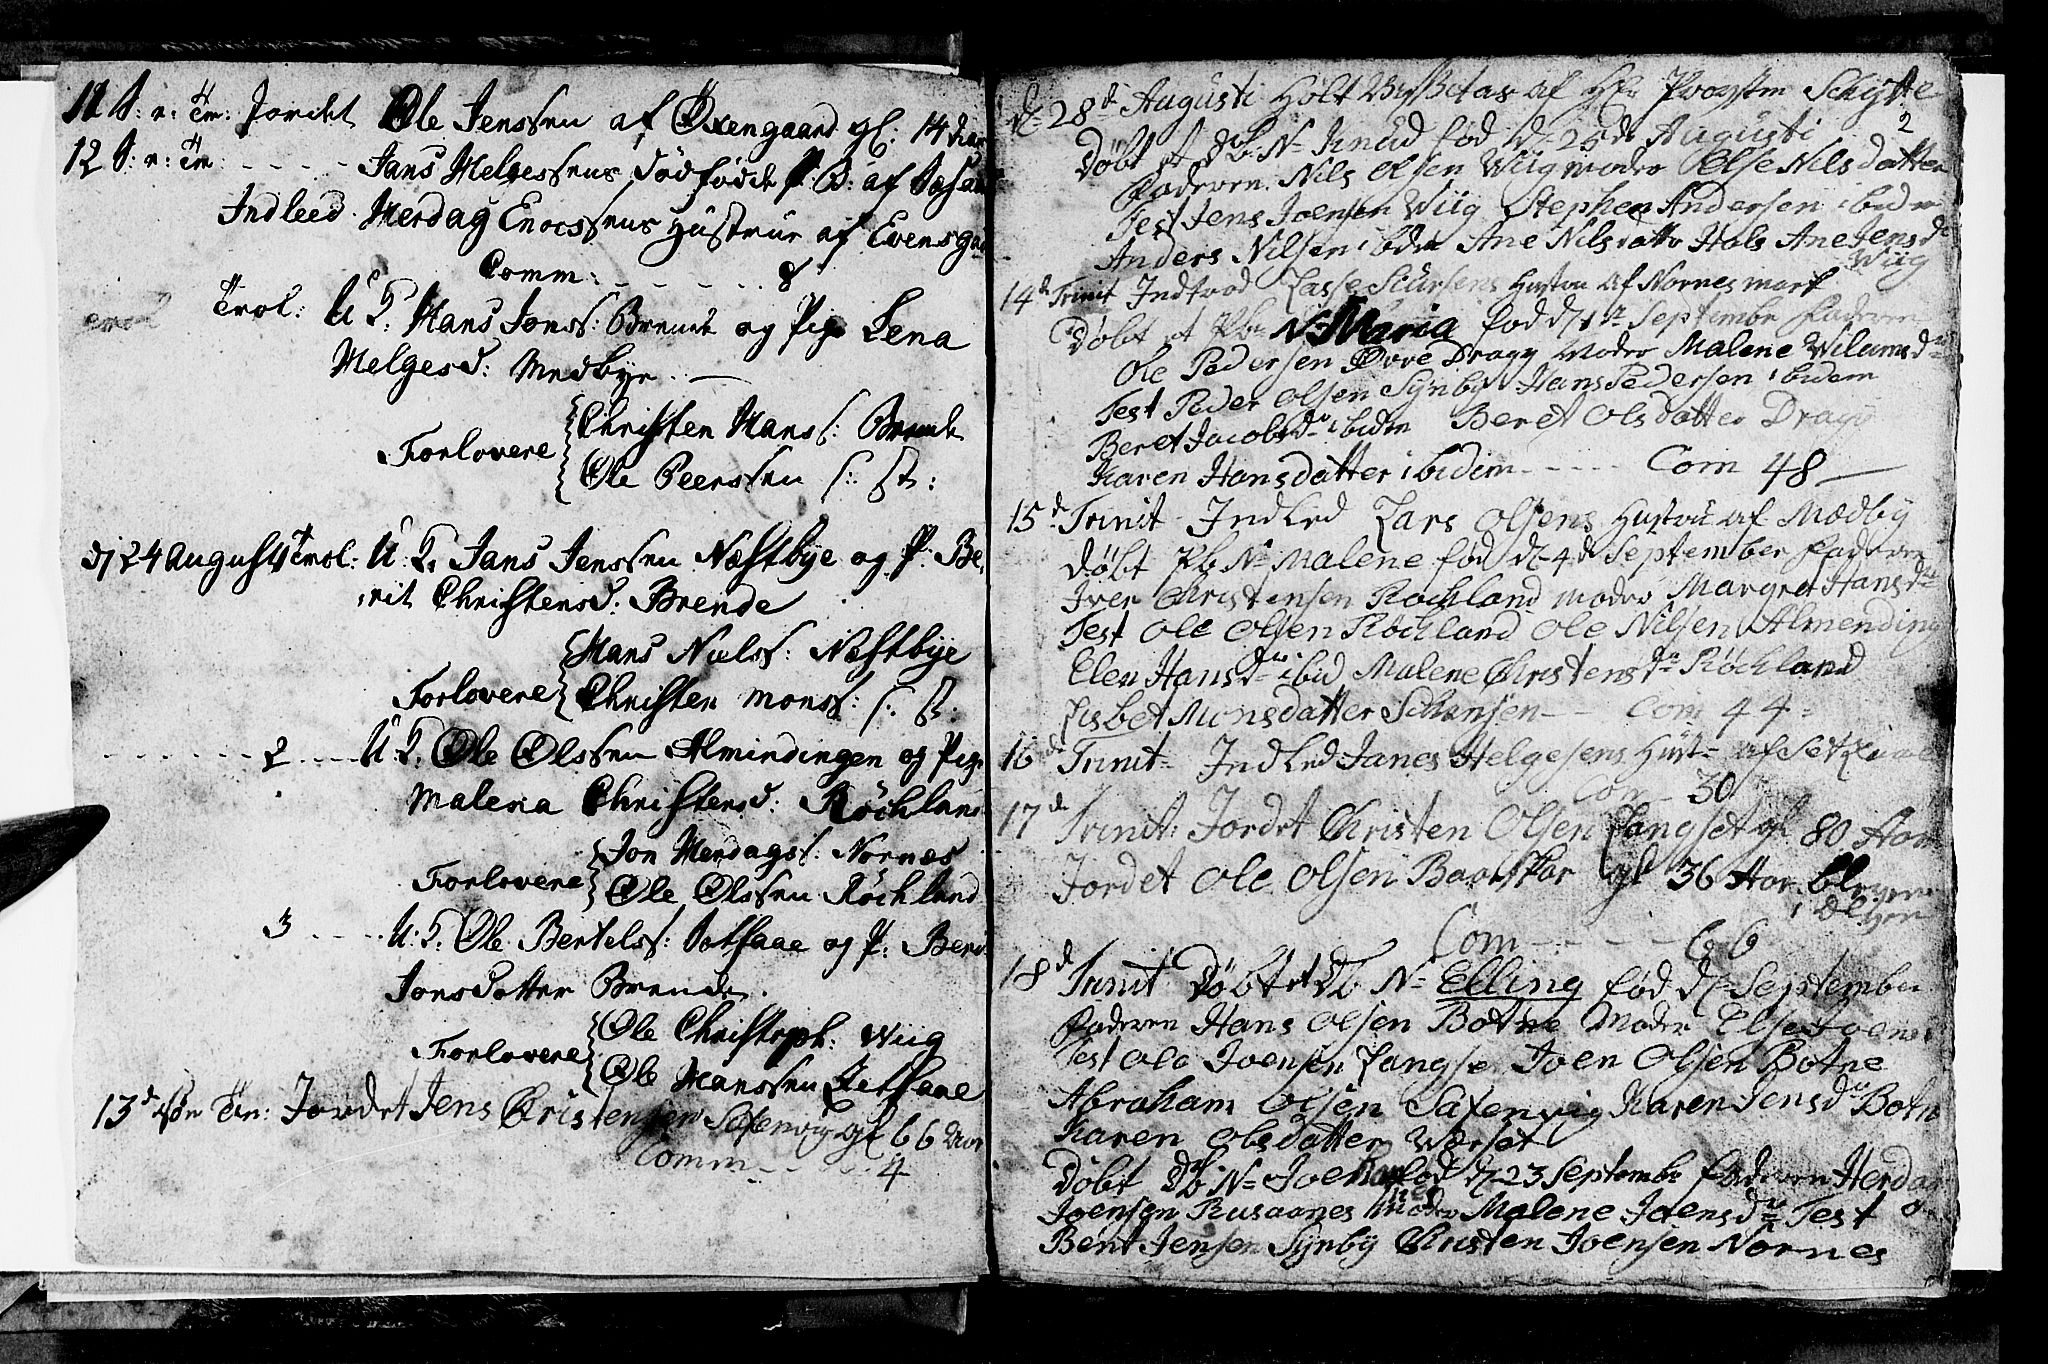 11 S: p: Tr: Jordet Ole Jenssen af Øxengaard gl: 14 dar
12 S: p: Tr: - - - - - Jans Helgessens dødfødde P: B: af
Indleed. Herdag Enocssens Hustrue af Evensga
Comm: - - - - - - 8
Trol: U. T. Hans Jonss: Brende og Pige Lena
Helgesd: Medbye. —
Forlovere
Christen Hanss: Brende
Ole Peerssen s: st:
dj 24 Augusti Trol: U. T. Jans Jenssen Næstbye og P: Be,
rit Christensd: Brende
Forlovere
Hans Nielss: Næstbye
Christen Monss: s: st:
- - - - - - - 2 - - - - U. T. Ole Olssen Almindingen og Pige
Malena Christensd: Røchland
Forlovere
Jon Herdagss: Nornæs
Ole Olssen Røchland
3 - - - - U: T. Ole Bertelss: Sætsaae og P: Bere
Jonsdatter Brende.
Forlovere
Ole Christoph: Wiig
Ole Hanssen Setsaae
13d Søn Trin: Jordet Jens Christensen Saxenvig gl 66 Aar
Comm - - - - 4
2
d 28d Augusti Holt Visitas af Hr Provsten Schytte
Døbt et db. N= Knud fød d- 25de Augusti
Faderen Nils Olsen Wiig moder Else Nilsdatter
Test Jens Joensen Wiig Stephen Andersen ibidem
Anders Nilsen ibidm Ane Nilsdattr Hals Ane Jensd
Wiig
14d Trinit Indtrod Lasse Siursens Hustru af Nornes mark
Døbt et Pb. N= Maria fød d 1st Septembr Faderen
Ole Pedersen Øvre Dragg Moder Malene Wilumsd
Test Peder Olsen Synby Hans Pedersen ibidem
Beret Jacobsdr ibidm Beret Olsdatter Dragg
Karen Hansdatter ibidem - - - - - Com 48 —
15d Trinit Indled Lars Olsens Hustru af Mædby
Døbt Pb N= Malene fød d- 4d September Faderen
Iver Christensen Røchland moder Margret Hansd
Test Ole Olsen Røchland Ole Nilsen Almending
Elen Hansd ibid Malene Christensdr Røchland
Lisbet Monsdatter - - Com 44 =
16d Trinit= Indled Janes Helgesens Hust= af
Com - 30
17d Trinit: Jordet Christen Olsen Langset gl 80 Aar
Jordet Ole Olsen gl 36 Aar. bleven
i Elven
Com - - - - - 66
18d Trinit Døbt et Db N= Elling fød d- September
Faderen Hans Olsen Botne Moder Else Joensd
Test Ole Joensen Langse Joen Olsen Botne
Abraham Olsen Saxenvig Karen Jensdr Botn
Karen Olsdatter Wærset
Døbt Db N= Joen fød d- 23 Septembr faderen Herdag
Joensen Rusaanes Moder Malene Joensdr Test
Bent Jensen Synby Christen Joensen Nornes